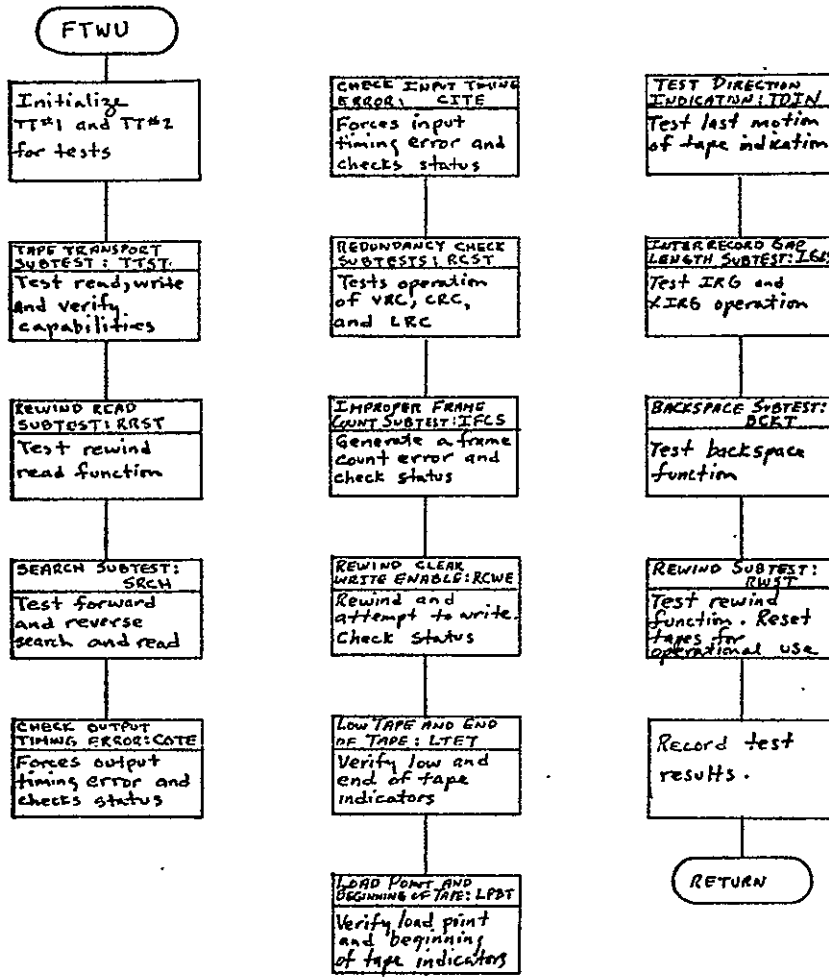 FTWU
Initialize
TT#1 and TT#2
for tests
TAPE TRANSPORT
SUBTEST: TTST.
Test read, write
and verify
capabilities
REWIND READ
SUBTEST: RRST
Test rewind
read function
SEARCH SUBTEST:
SRCH
Test forward
and reverse
search and read
CHECK OUTPUT
TIMING ERROR: COTE
Forces output
timing error and
checks status
CHECK INPUT TIMING
ERROR: CITE
Forces input
timing error and
checks status
REDUNDANCY CHECK
SUBTESTS: RCST
Tests operation
of VRC, CRC,
and LRC
IMPROPER FRAME
COUNT SUBTEST: IFCS
Generate a frame
count error and
check status
REWIND CLEAR
WRITE ENABLE: RCWE
Rewind and
attempt to write.
Check Status
LOW TAPE AND END
OF TAPE: LTET
Verify low and
end of tape
indicators
LOAD POINT AND
BEGINNING OF TAPE: LPBT
Verify load point
and beginning
of tape indicators
TEST DIRECTION
INDICATION: TDIN
Test last motion
of tape indication
INTERRECORD GAP
LENGTH SUBTEST:
Test IRG and
XIRG operation
BACKSPACE SUBTEST:
BCKT
Test backspace
function
REWIND SUBTEST:
RWST
Test rewind
function. Reset
tapes for
operational use
Record test
results.
RETURN